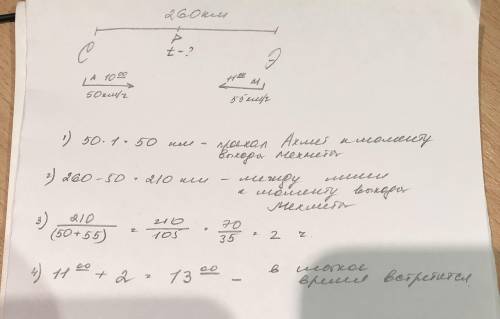 260км
С
P
t-?
Э
А 10⁰⁰
50км/ч
11⁰⁰ М
55км/ч
1) 50 · 1 = 50 км - проехал Ахмет к моменту
выхода Мехмета
2) 260 - 50 = 210 км - между ними
к моменту выхода
Мехмета
3) 210/(50+55) = 210/105 = 70/35 = 2 ч.
4) 11⁰⁰ + 2 = 13⁰⁰ - в
время встретится